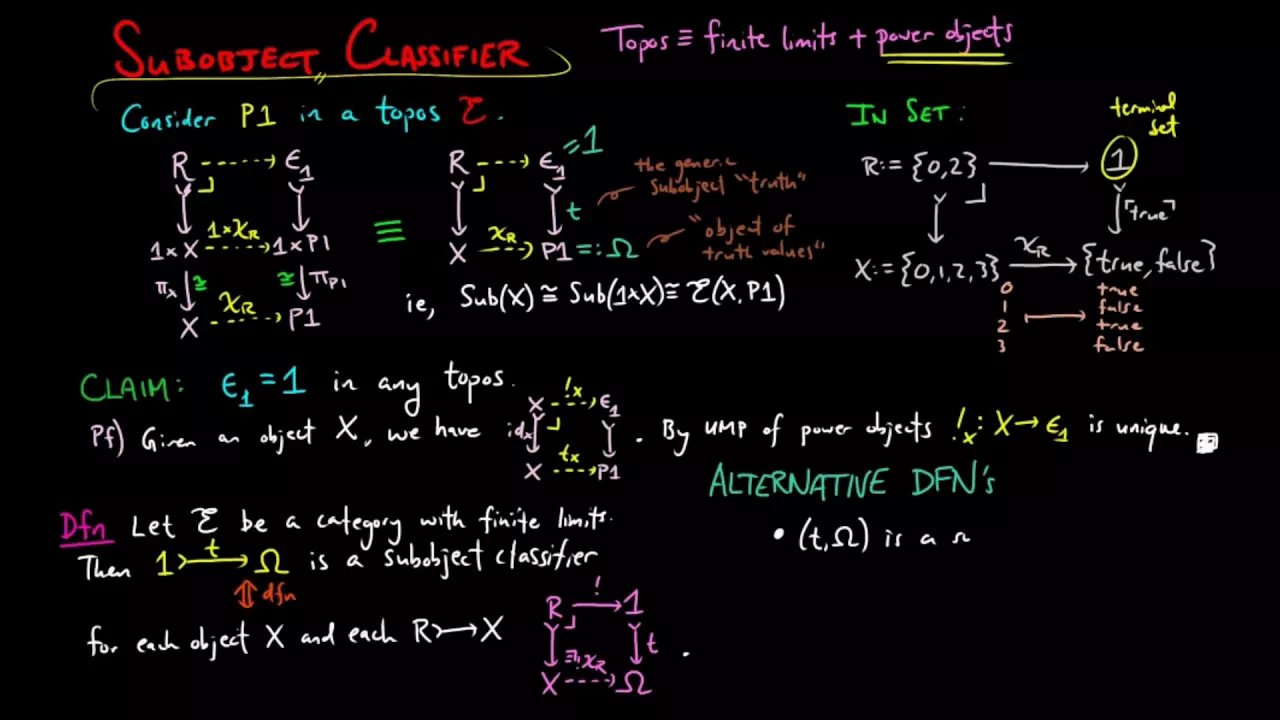 SUBOBJECT CLASSIFIER
Topos ≡ finite limits + power objects
Consider P1 in a topos ℰ.
R ⇢ ∈₁
1×X 1×χ_R 1×P1
π_X ≅ ≅ π_P1
X χ_R P1
≡
R ⇢ ∈₁ = 1
t
X χ_R P1 =: Ω
the generic
subobject "truth"
"object of
truth values"
ie, Sub(X) ≅ Sub(1×X) ≅ ℰ(X, P1)
IN SET:
terminal
set
R := {0,2} → 1
⌜true⌝
X := {0,1,2,3} χ_R → {true, false}
0 true
1 false
2 ↦ true
3 false
CLAIM: ∈₁ = 1 in any topos.
Pf) Given an object X, we have
X !_X ∈₁
id_X
X t_X P1
. By UMP of power objects !_X : X → ∈₁ is unique.
ALTERNATIVE DFN's
• (t,Ω) is a
Dfn Let ℰ be a category with finite limits.
Then 1 ↣ t Ω is a subobject classifier
⇕ dfn
for each object X and each R ↣ X
R ! → 1
t
X ∃! χ_R Ω .